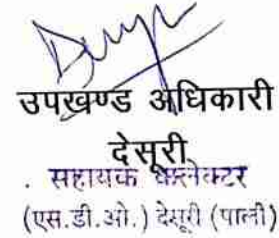 उपखण्ड अधिकारी
देसूरी
सहायक कलेक्टर
(एस.डी.ओ.) देसूरी (पाली)